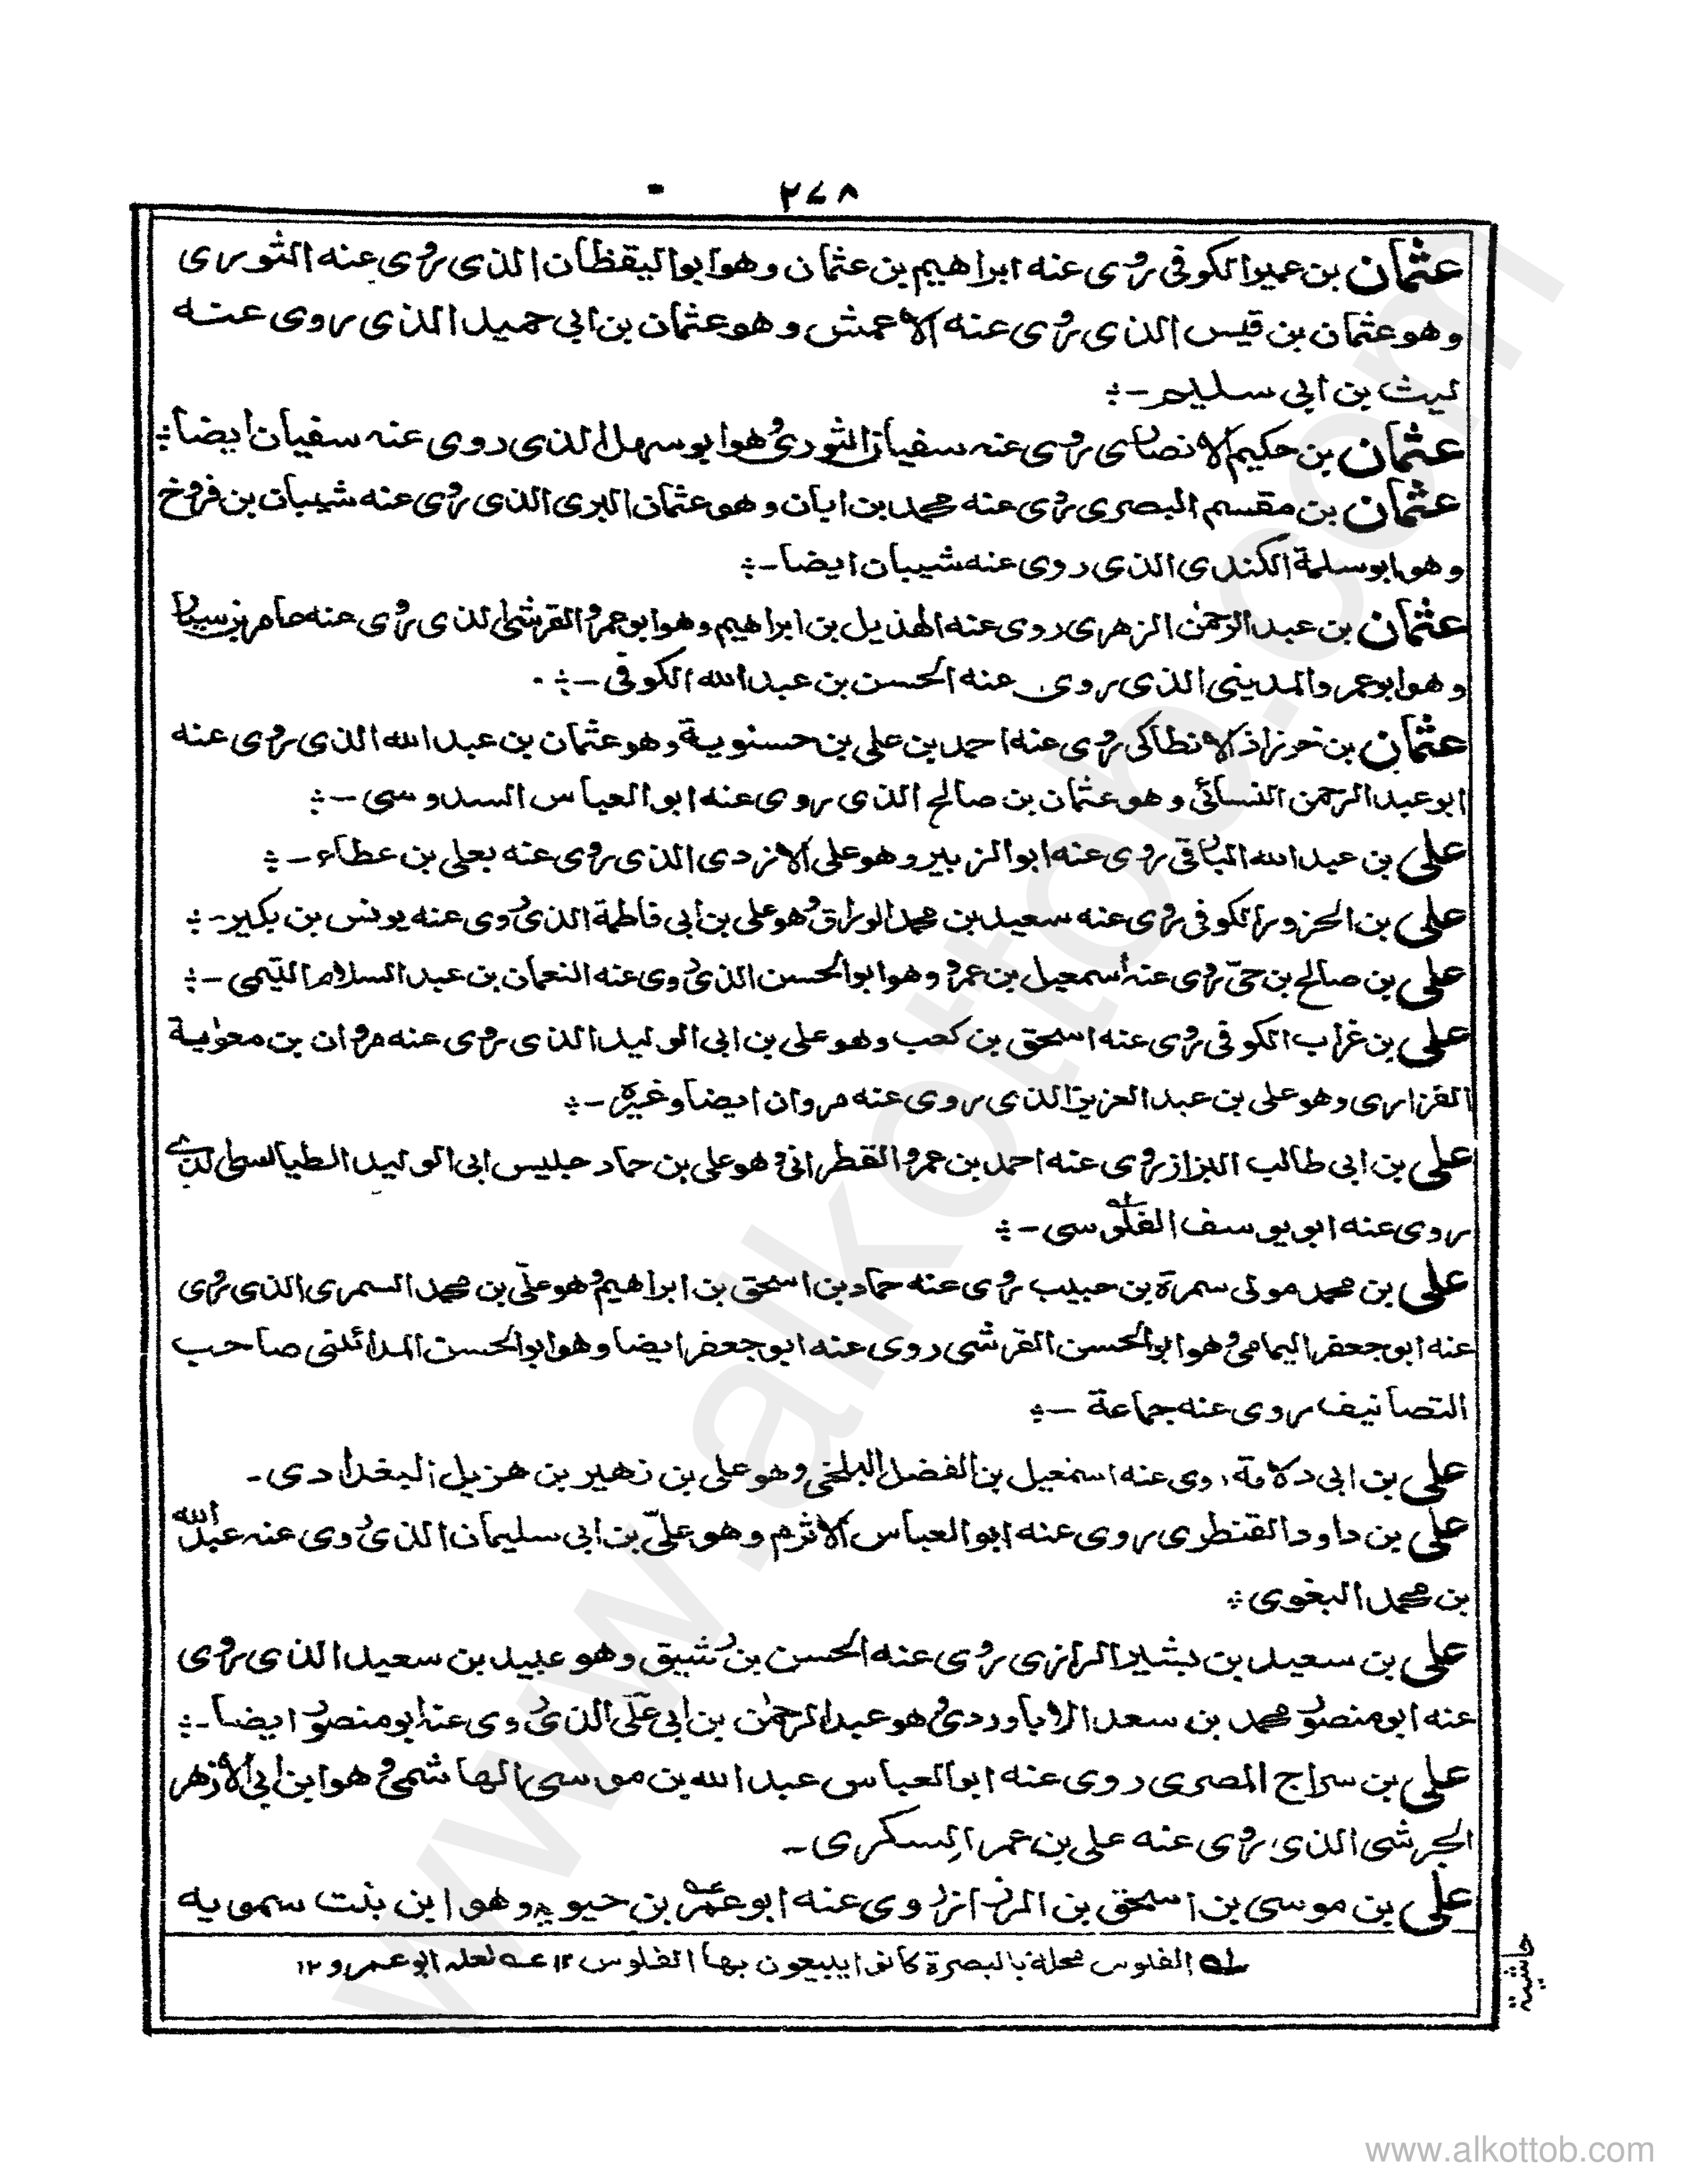 ٢٧٨
عثمان بن عمير الكوفى روى عنه ابراهيم بن عثمان وهو ابو اليقظان الذى روى عنه الثورى
وهو عثمان بن قيس الذى روى عنه الاعمش وهو عثمان بن ابى حميد الذى روى عنه
ليث بن ابى سليم -
عثمان بن حكيم الانصارى روى عنه سفيان الثورى وهو ابو سهل الذى روى عنه سفيان ايضا
عثمان بن مقسم البصرى روى عنه محمد بن ابان وهو عثمان البرى الذى روى عنه شيبان بن فروخ
وهو ابو سلمة الكندى الذى روى عنه شيبان ايضا -
عثمان بن عبد الرحمن الزهرى روى عنه الهذيل بن ابراهيم وهو ابو عمرو القرشى الذى روى عنه عامر بن سيار
وهو ابو عمرو المدينى الذى روى عنه الحسن بن عبد الله الكوفى -
عثمان بن خرزاذ الانطاكى روى عنه احمد بن على بن حسنوية وهو عثمان بن عبد الله الذى روى عنه
ابو عبد الرحمن النسائى وهو عثمان بن صالح الذى روى عنه ابو العباس السدوسى -
على بن عبد الله البارقى روى عنه ابو الزبير وهو على الازدى الذى روى عنه يعلى بن عطاء -
على بن الحزور الكوفى روى عنه سعيد بن محمد الوراق وهو على بن ابى فاطمة الذى روى عنه يونس بن بكير -
على بن صالح بن حىّ روى عنه اسمعيل بن عمرو وهو ابو الحسن الذى روى عنه النعمان بن عبد السلام التيمى -
على بن غراب الكوفى روى عنه اسحق بن كعب وهو على بن ابى الوليد الذى روى عنه مروان بن معوية
الفزارى وهو على بن عبد العزيز الذى روى عنه مروان ايضا وغيره -
على بن ابى طالب البزاز روى عنه احمد بن عمرو القطرانى وهو على بن حماد جليس ابى الوليد الطيالسى الذى
روى عنه ابو يوسف الفلوسى -
على بن محمد مولى سمرة بن حبيب روى عنه حماد بن اسحق بن ابراهيم وهو علىّ بن محمد السمرى الذى روى
عنه ابو جعفر اليمامى وهو ابو الحسن القرشى روى عنه ابو جعفر ايضا وهو ابو الحسن المدائنى صاحب
التصانيف روى عنه جماعة -
على بن ابى دلامة روى عنه اسمعيل بن الفضل البلخى وهو على بن زهير بن هزيل البغدادى -
على بن داود القنطرى روى عنه ابو العباس الاثرم وهو علىّ بن ابى سليمان الذى روى عنه عبد الله
بن محمد البغوى
على بن سعيد بن بشير الرازى روى عنه الحسن بن رشيق وهو عبيد بن سعيد الذى روى
عنه ابو منصور محمد بن سعد الاباوردى وهو عبد الرحمن بن ابى علىّ الذى روى عنه ابو منصور ايضا -
على بن سراج المصرى روى عنه ابو العباس عبد الله بن موسى الهاشمى وهو ابن ابى الازهر
الجرشى الذى روى عنه على بن عمر السكرى -
على بن موسى بن اسحق بن الرزاز روى عنه ابو عمر بن حيويه وهو ابن بنت سمويه
له الفلوس محلة بالبصرة كانوا يبيعون بها الفلوس ١٢ عه لعله ابو عمرو ١٢
حاشية
www.alkottob.com
www.alkottob.com